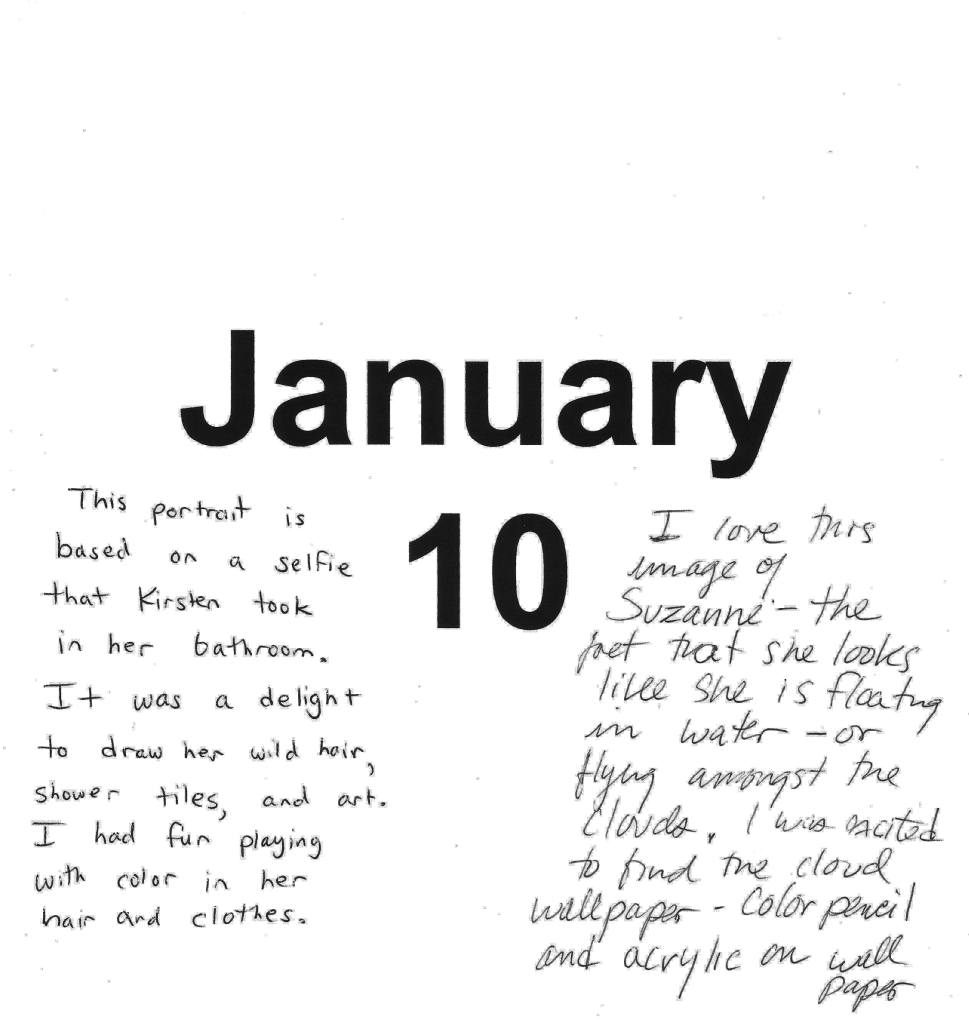 January
10
This portrait is
based on a selfie
that Kirsten took
in her bathroom.
It was a delight
to draw her wild hair,
shower tiles, and art.
I had fun playing
with color in her
hair and clothes.
I love this
image of
Suzanne - the
fact that she looks
like she is floating
in water - or
flying amongst the
clouds. I was excited
to find the cloud
wallpaper - Color pencil
and acrylic on wall
paper